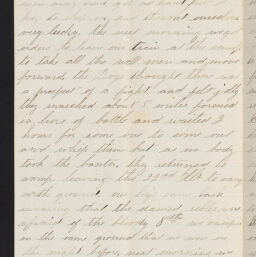 away and got
hay to sleep on and thought ourselves
very lucky, the next morning we got
orders to leave our train at the camp
to take all the well men and move
forward the Boys thought there was
a prospect of a fight and felt jolly
they marched about 5 miles formed
in lines of battle and waited 2
hours for some one to come out
and whip them but as no body
took the banter they returned to
camp leaving the 22nd
with
that the
afraid of the bloody 8th we camped
on the same ground that we were on
the night before, next morning we